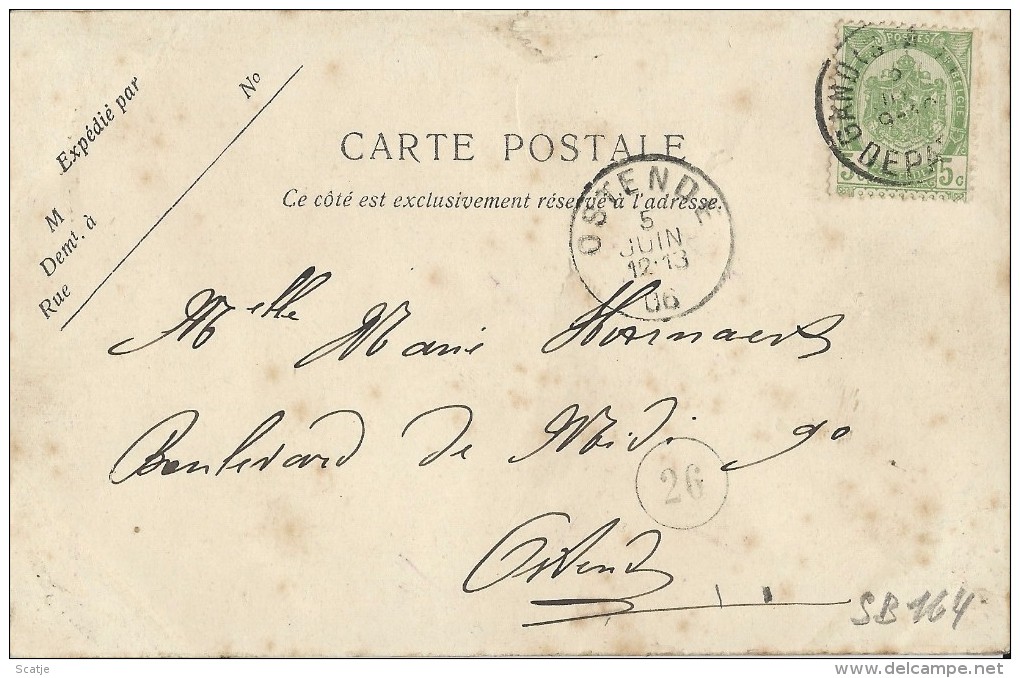 Expédié par
No
M
Demt. à
Rue
CARTE POSTALE
Ce côté est exclusivement réservé à l'adresse.
POSTES
5 5c
GAND
DEPART
OSTENDE
5
JUIN
12-13
06
Melle Marie
Boulevard de Midi 90
26
Ostende
SB164
Scatje
delcampe.net